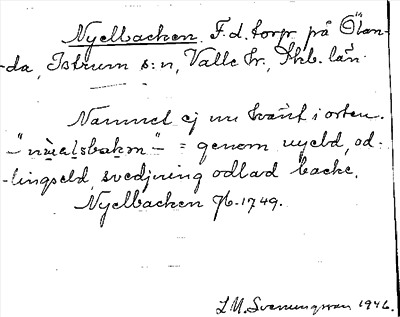 Nyelbacken. F.d. torp på Ölan-
-da, Istrum s:n, Valle hr, Skb. län.
Namnet ej nu känt i orten.
= genom nyeld, od-
-lingseld, svedjning odlad backe.
Nyelbacken Jb. 1749.
L.M. Svenungsson 1946.